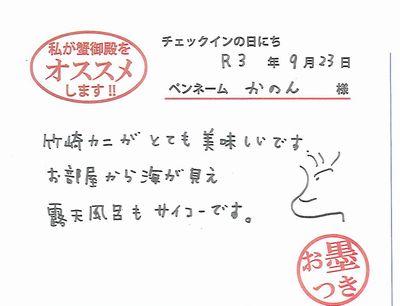 私が蟹御殿を
オススメ
します!!
チェックインの日にち
R3 年 9月 23日
ペンネーム かのん 様
竹崎カニがとても美味しいです
お部屋から海が見え
露天風呂もサイコーです。
お墨
つき